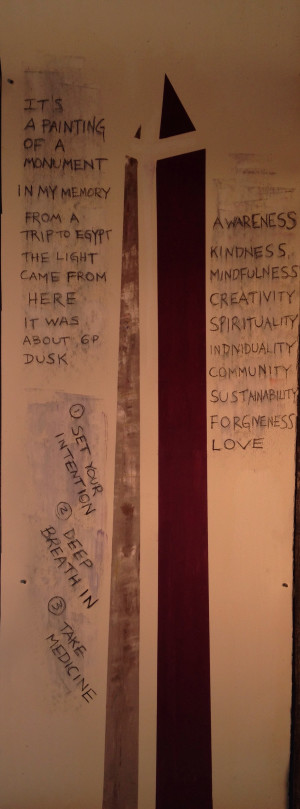 IT'S
A PAINTING
OF A
MONUMENT
IN MY MEMORY
FROM A
TRIP TO EGYPT
THE LIGHT
CAME FROM
HERE
IT WAS
ABOUT 6P
DUSK
① SET YOUR
INTENTION
② DEEP
BREATH IN
③ TAKE
MEDICINE
AWARENESS
KINDNESS
MINDFULNESS
CREATIVITY
SPIRITUALITY
INDIVIDUALITY
COMMUNITY
SUSTAINABILITY
FORGIVENESS
LOVE